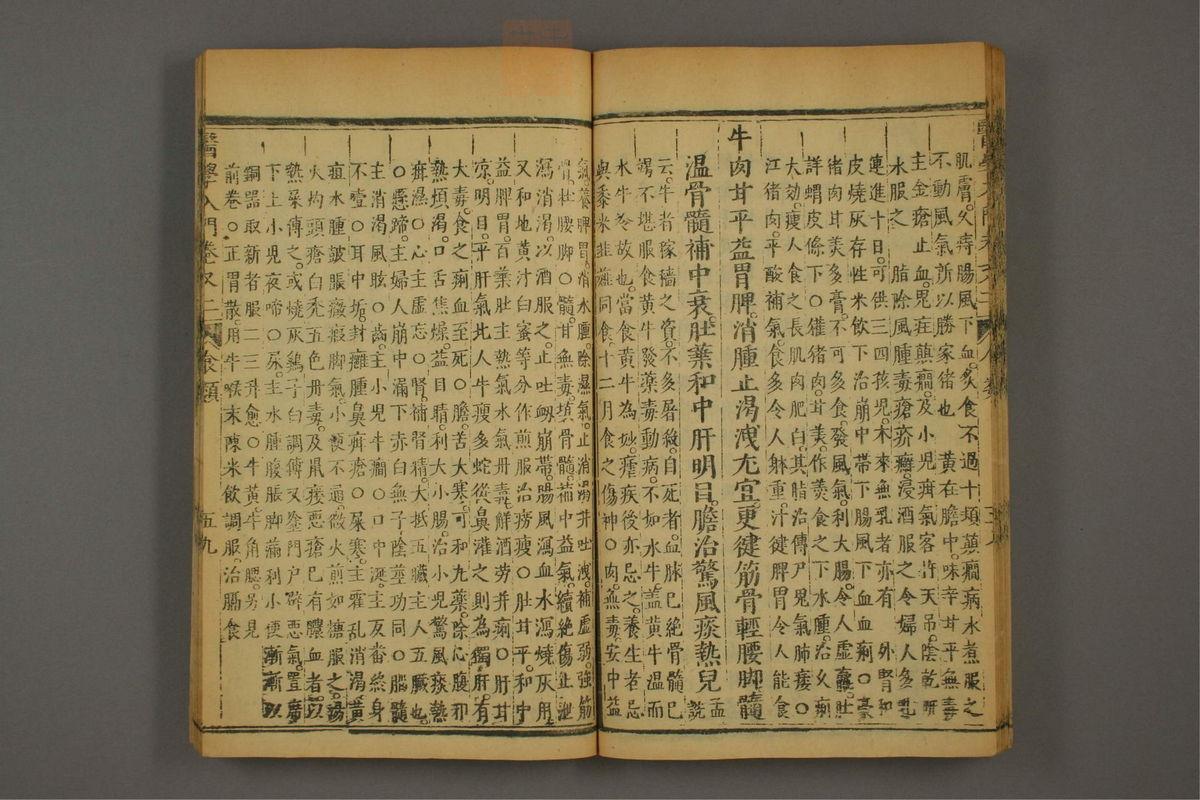 肌膚。久痔腸風下血。多食不過十頓。癲癇病水煮服之
不動風氣所以勝家猪也。黃在膽中。味辛甘平無毒
主金瘡止血。鬼疰癲癇。及小兒疳氣客忤天吊。陰乾研
水服之 脂除風腫毒瘡疥癬。浸酒服之令婦人多乳
連進十日。可供三四孩兒。本來無乳者亦有 外腎和
皮燒灰存性米飲下治崩中帶下腸風下血血痢。○豪
猪肉甘美多膏。不可多食。發風氣。利大腸。令人虛羸。肚
詳蝟皮條下○㹠猪肉。甘美。作羹食之下水腫。治久痢
大効。瘦人食之長肌肉肥白。其脂治傳尸鬼氣肺痿○
江猪肉。平酸補氣。食多令人躰重。汁健脾胃令人能食
牛肉甘平益胃脾。消腫止渴洩尤宜。更健筋骨輕腰脚髓
温骨髓補中衰。肚藥和中肝明目。膽治驚風痰熱兒 孟詵
云。牛者稼穡之資。不多屠殺。自死者。血脉已絕骨髓已
竭不堪服食黃牛發藥毒動病。不如水牛。盖黃牛温而
水牛冷故也。當食黃牛為妙。瘧疾後亦忌之。養生者忌
與黍米韭薤同食。十二月食之傷神。○肉。無毒。安中益
氣養脾胃消水腫。除濕氣。止消渴并吐洩。補虛弱。強筋
骨壯腰脚○髓。甘無毒。填骨髓。補中益氣。續絕傷止泄
瀉消渴。以酒服之。止吐衂崩帶。腸風瀉血水瀉燒灰用
又和地黃汁白蜜等分作煎服治癆瘦。○肚甘平。和中
益脾胃。百葉肚主熱氣水氣丹毒。觧酒劳并痢。○肝甘
凉明目。平肝氣北人牛瘦多蛇從鼻灌之則為獨肝。有
大毒。食之痢血至死○膽。苦大寒。可和丸藥。除心腹邪
熱煩渴。口舌焦燥。益目睛。利大小腸。治小兒驚風痰熱
疳濕○心主虛忘。○腎。補腎精。大抵五臟主人五臟也
○懸蹄。主婦人崩中漏下赤白無子陰莖功同○腦髓
主消渴風眩○齒。主小兒牛癎○口中涎。主反畨終身
不噎○耳中垢。封癰腫鼻疳瘡○屎寒。主霍乱消渴黃
疸水腫皷脹癥瘕脚氣。小便不通。微火煎如糖服之。湯
火灼頭瘡白禿五色丹毒。及鼠瘻惡瘡已有膿血者。以
熱屎傅之。或燒灰鷄子白調傅又塗門户辟惡氣。置席
下上小兒夜啼。○尿。主水腫腹脹脚滿利小便漸漸以
銅器取新者服二三升愈○牛黃牛角䚡。另見
前卷○正胃散用牛喉末陳米飲調服治膈食
醫學入門卷又二
食類
五九